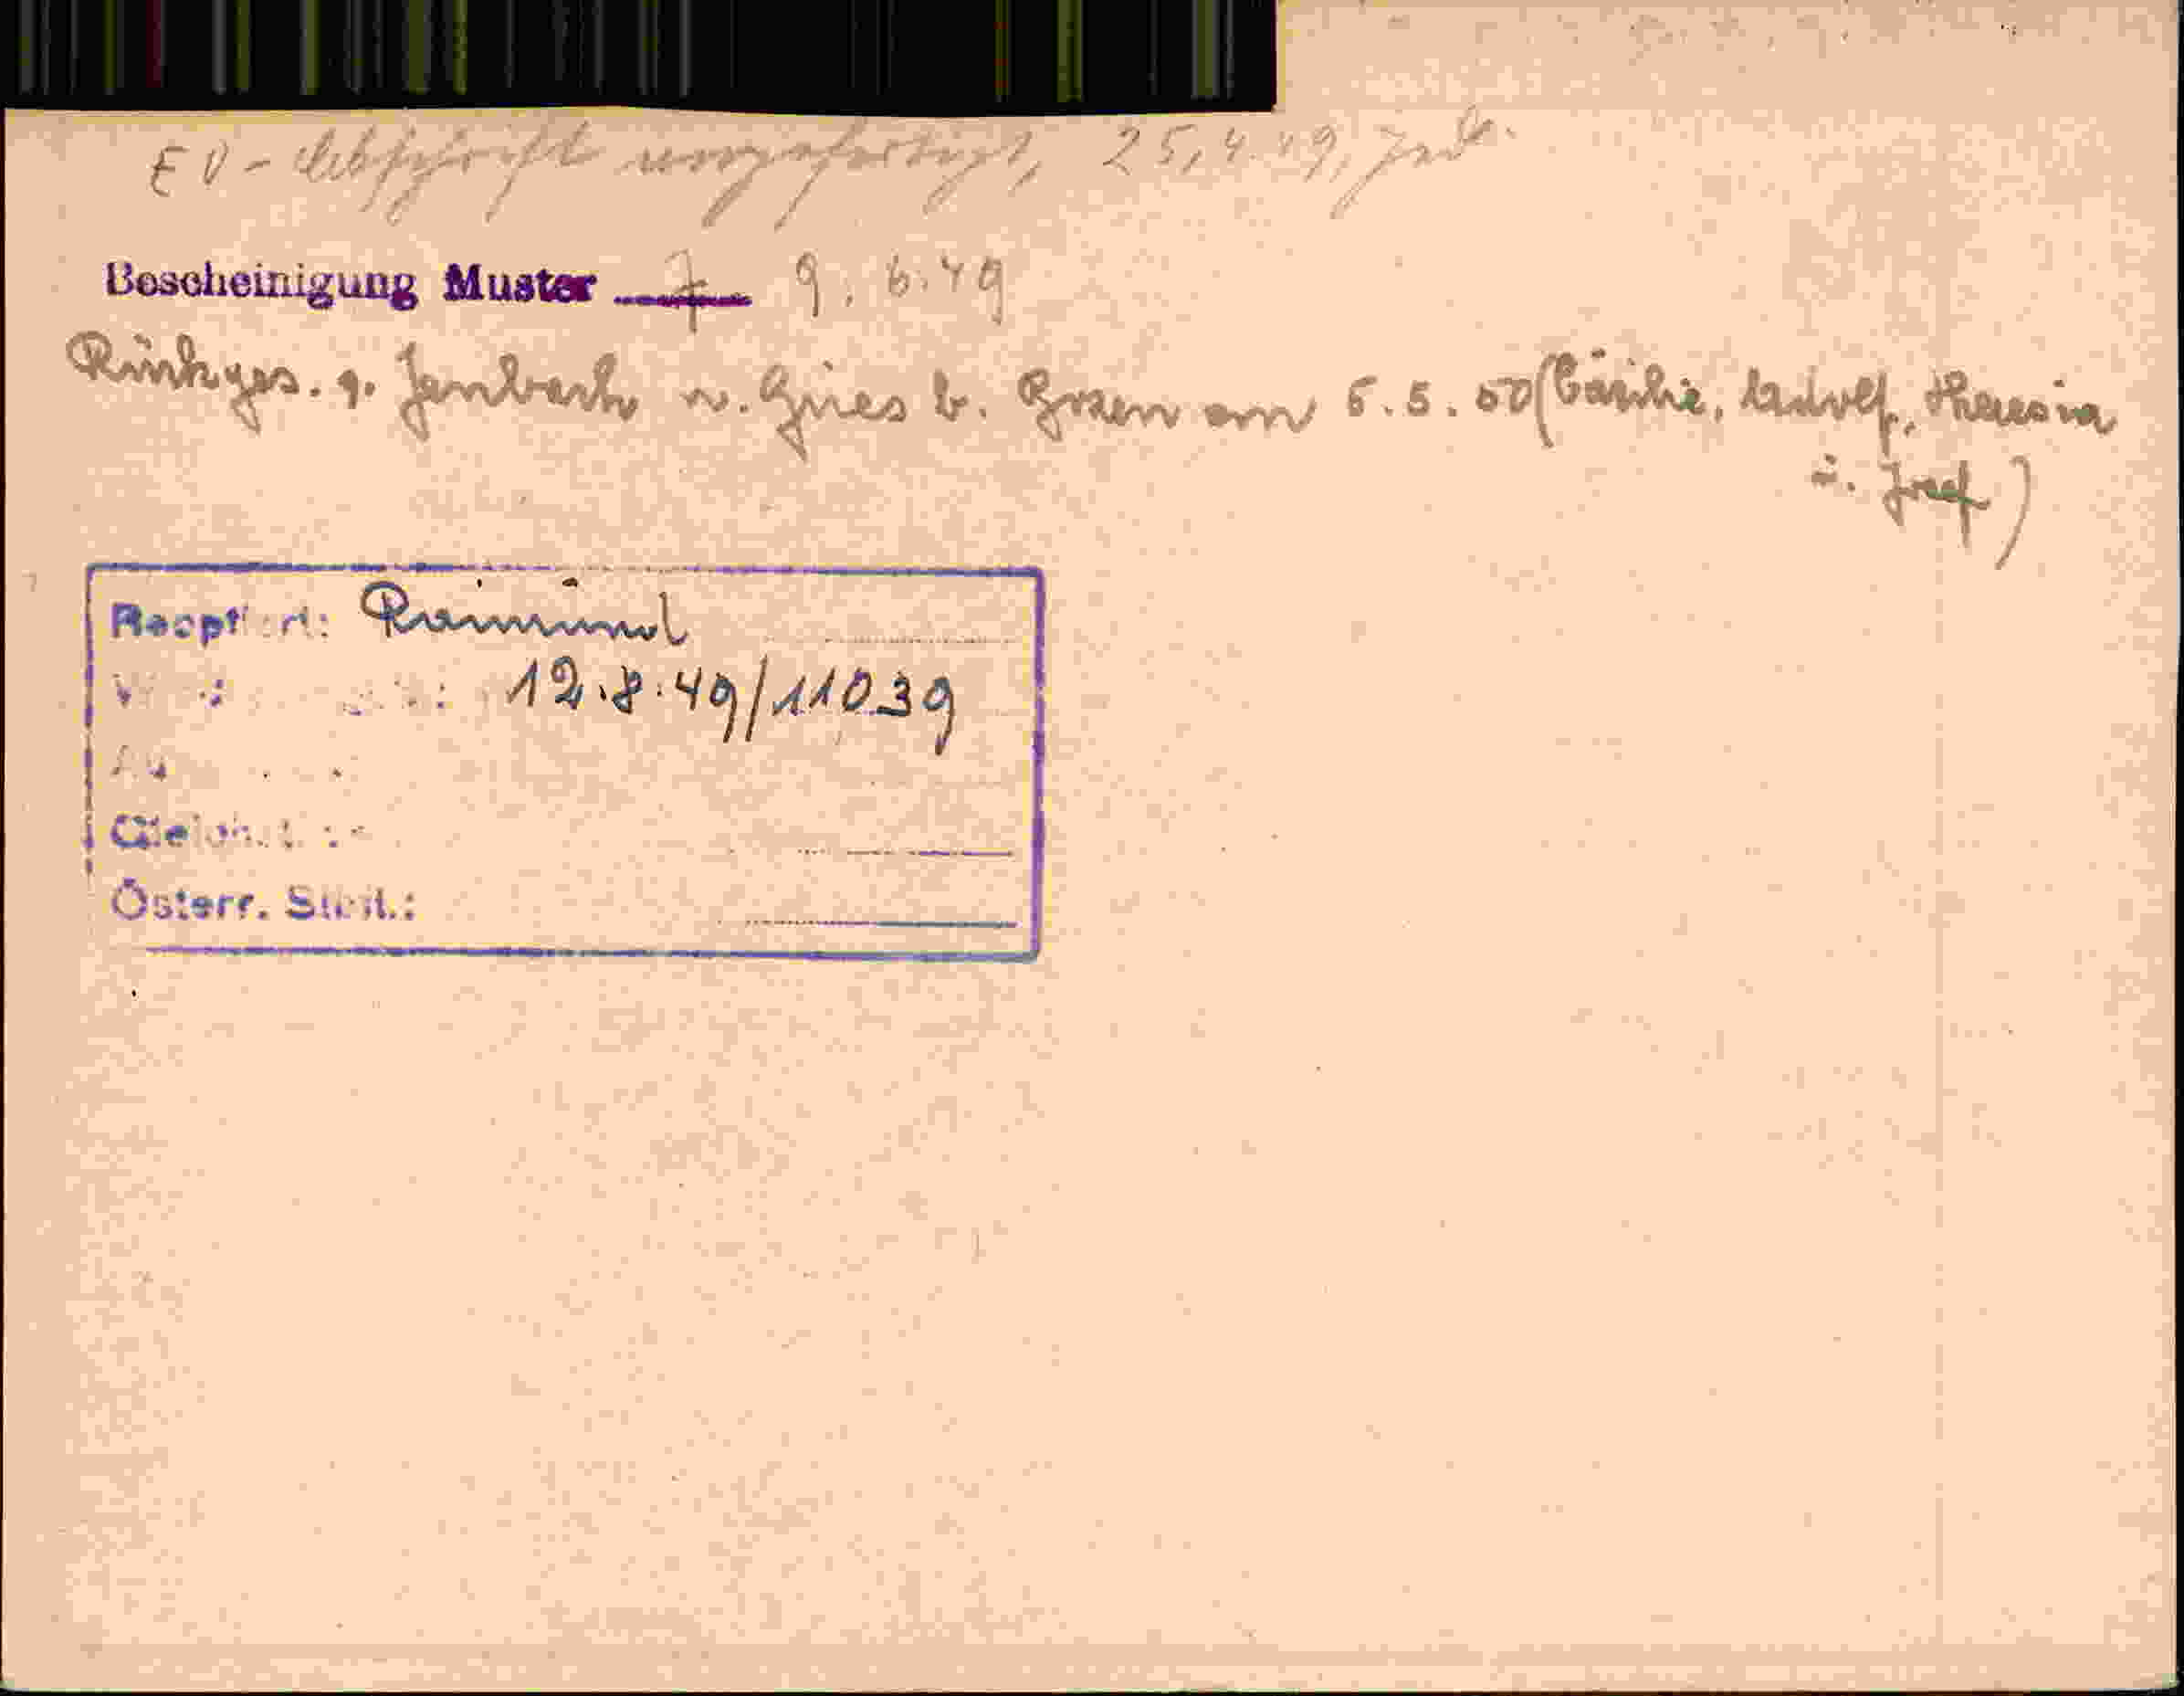 EV-Abschrift ausgefertigt, 25.4.49,
Bescheinigung Muster 7 9.6.49
Rücks. v. Jenbach n. Gries b. Bozen am 5.5.50 (Cäcilie, Adolf, Theresia
u. Josef)
Raimund
12.8.49/11039
Österr.